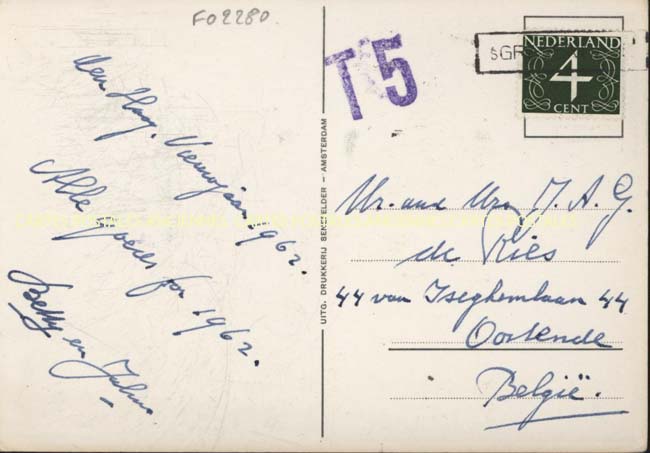 FO2280.
Den Haag, Nieuwjaar 1962.
Alle goeds for 1962.
Betty en
UITG. DRUKKERIJ SEKSTELDER – AMSTERDAM
T 5
sGR
NEDERLAND
4
CENT
Mr. and Mrs J. A. G.
de Kies
44 van Iseghemlaan 44
Oostende
België.